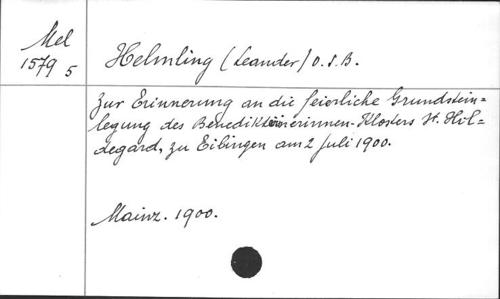 Mel
1579 5
Helmling (Leander) O.S.B.
Zur Erinnerung an die feierliche Grundstein=
legung des Benediktinerinnen-Klosters St. Hil=
degard, zu Eibingen am 2 Juli 1900.
Mainz. 1900.